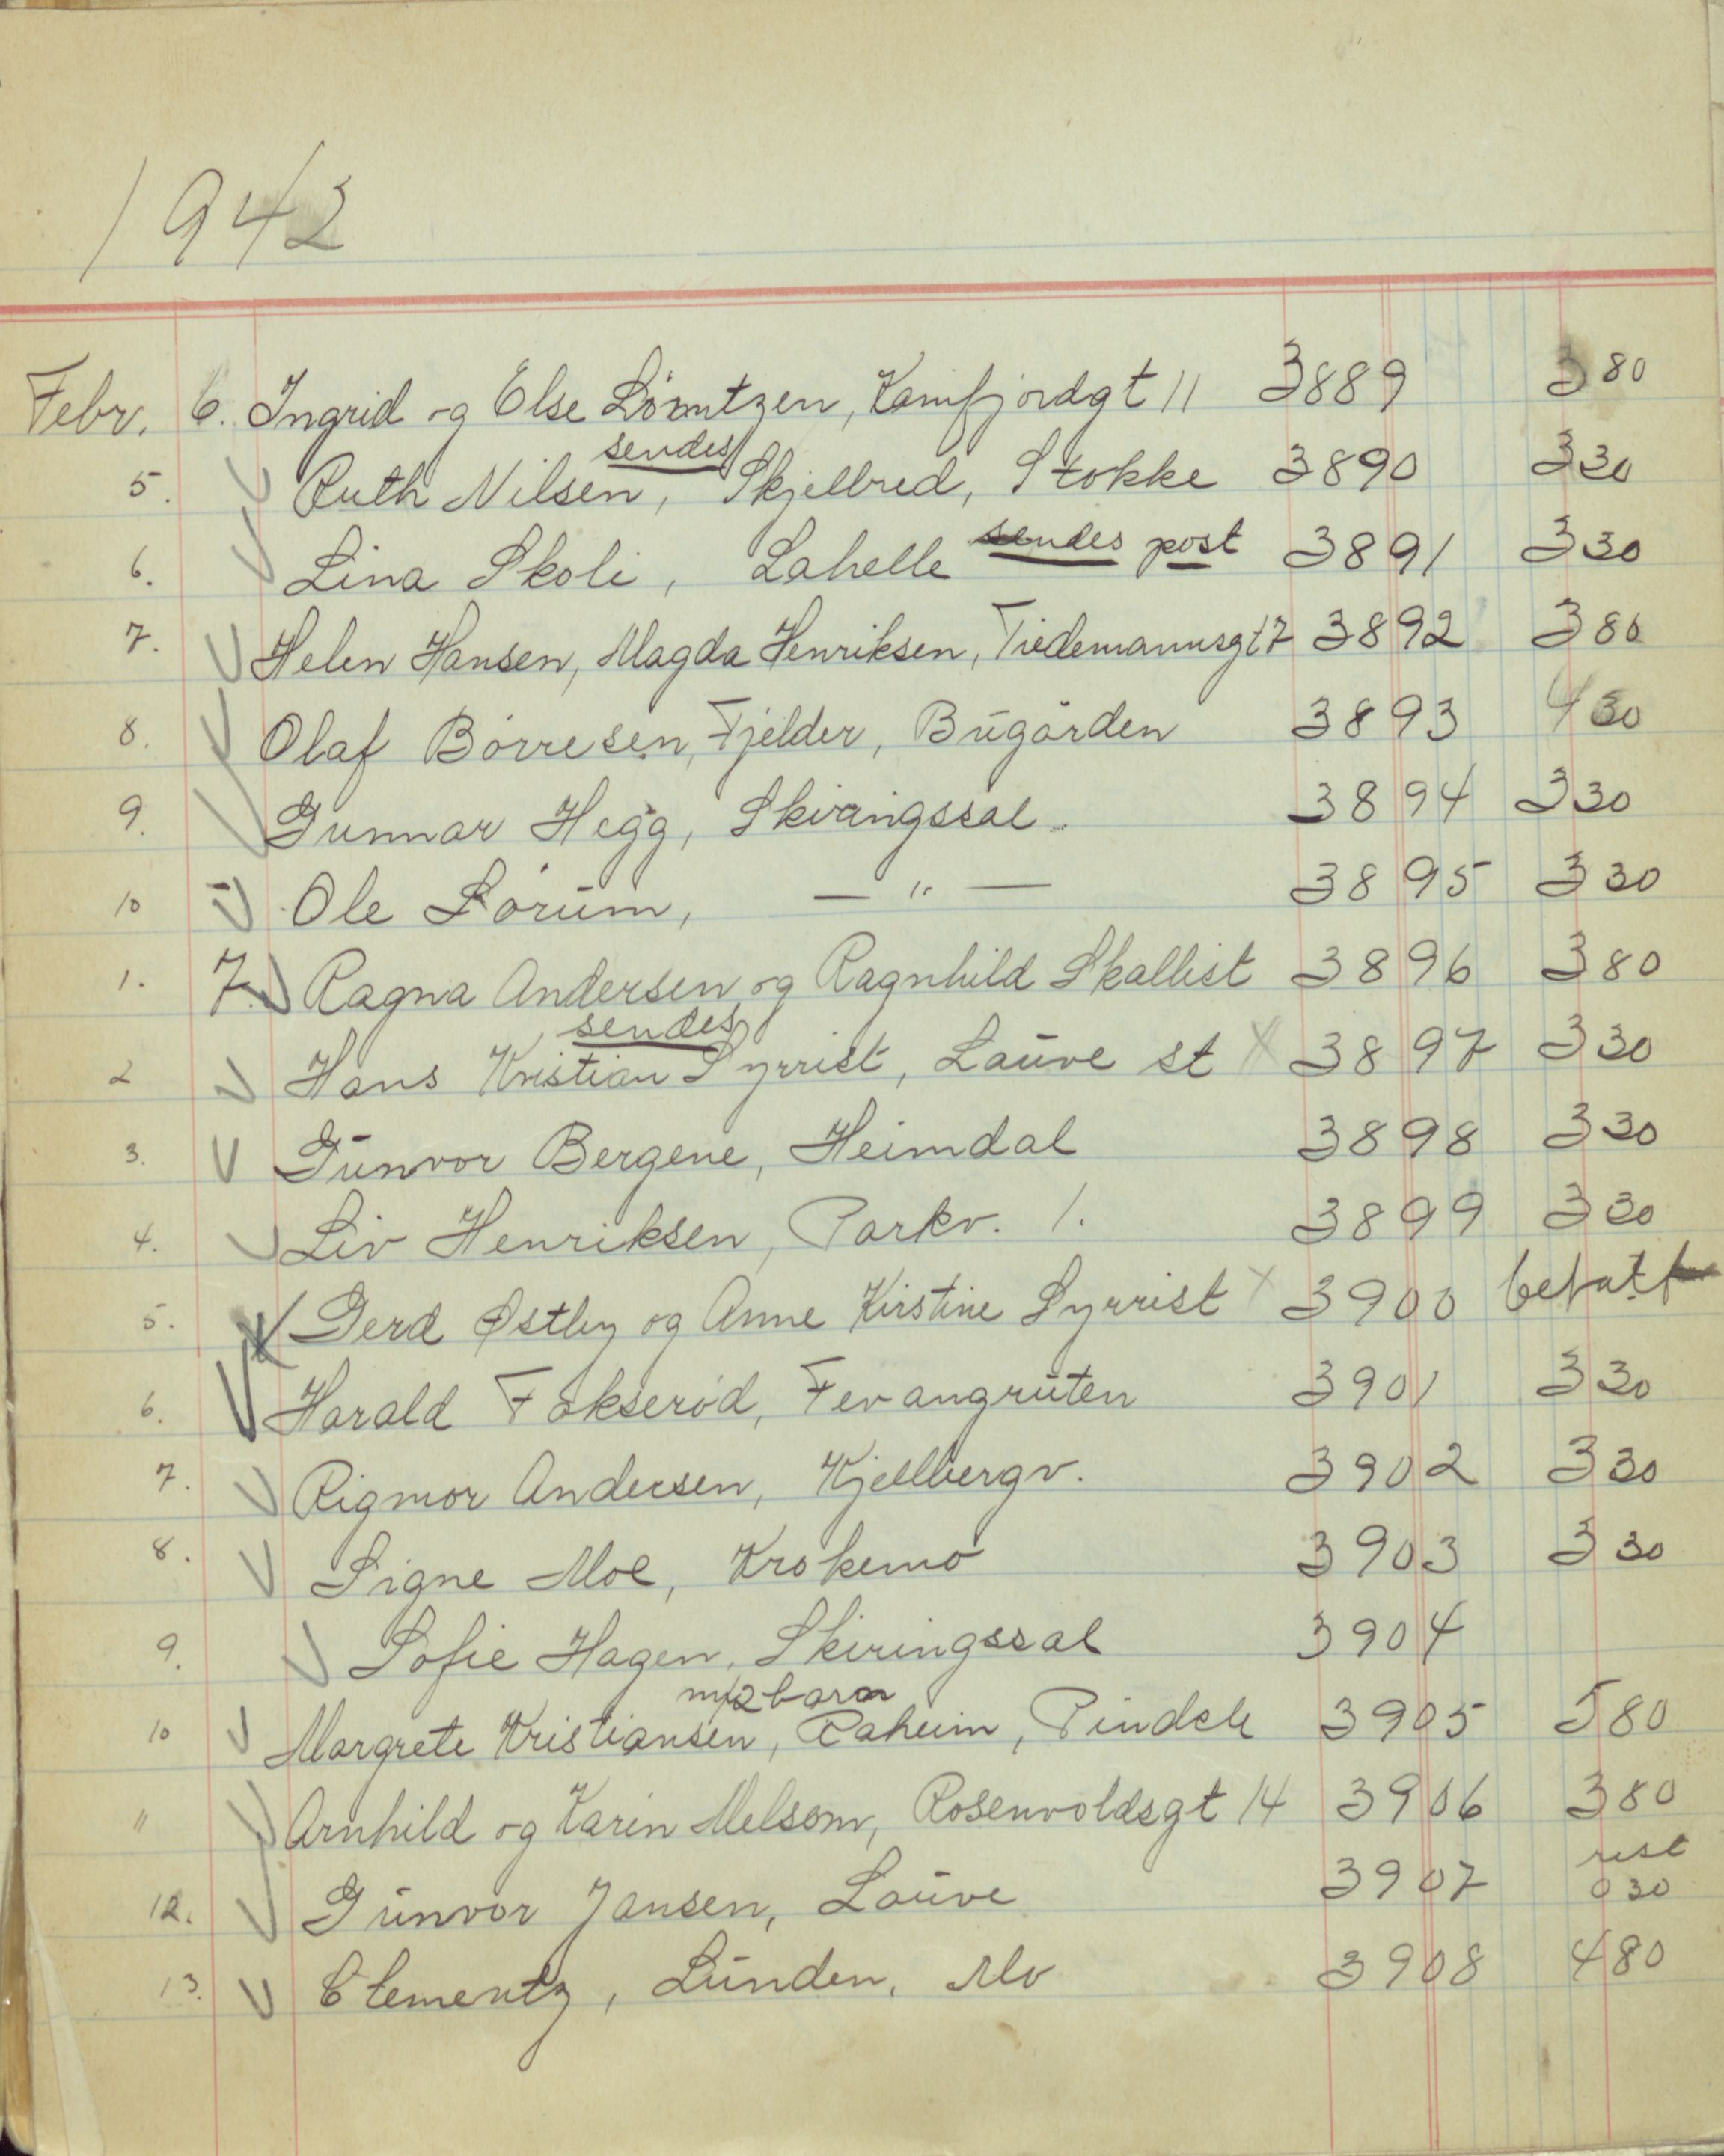 1942
Febr. 6. Ingrid og Else Lorentzen, Kamfjordgt 11 3889 3 80
sendes
5. Ruth Nilsen, Skjelbred, Stokke 3890 3 30
6. Lina Skoli, Lahelle sendes post 3891 3 30
7. Helen Hansen, Magda Henriksen, Tiedemannsgt 7 3892 3 80
8. Olaf Börresen, Fjelder, Bugården 3893 4 30
9. Gunnar Hegg, Skiringssal 3894 3 30
10 Ole Sörum, — " — 3895 3 30
1. 7. Ragna Andersen og Ragnhild Skallist 3896 3 80
sendes
2 Hans Kristian Syrrist, Lauve st X 3897 3 30
3. Gunvor Bergene, Heimdal 3898 3 30
4. Liv Henriksen, Parkv. 1. 3899 3 30
5. Gerd Østby og Anne Kirstine Syrrist X 3900 betalt
6. Harald Fokseröd, Fevangruten 3901 3 30
7. Rigmor Andersen, Kjellbergv. 3902 3 30
8. Signe Moe, Krokemo 3903 3 30
9. Sofie Hagen, Skiringssal 3904
m/2 barn
10 Margrete Kristiansen, Raheim, Pindsle 3905 5 80
" Arnhild og Karin Melsom, Rosenvoldsgt 14 3906 3 80
rest
12. Gunvor Jansen, Lauve 3907 0 30
13. Clementz, Lunden, Mo 3908 4 80